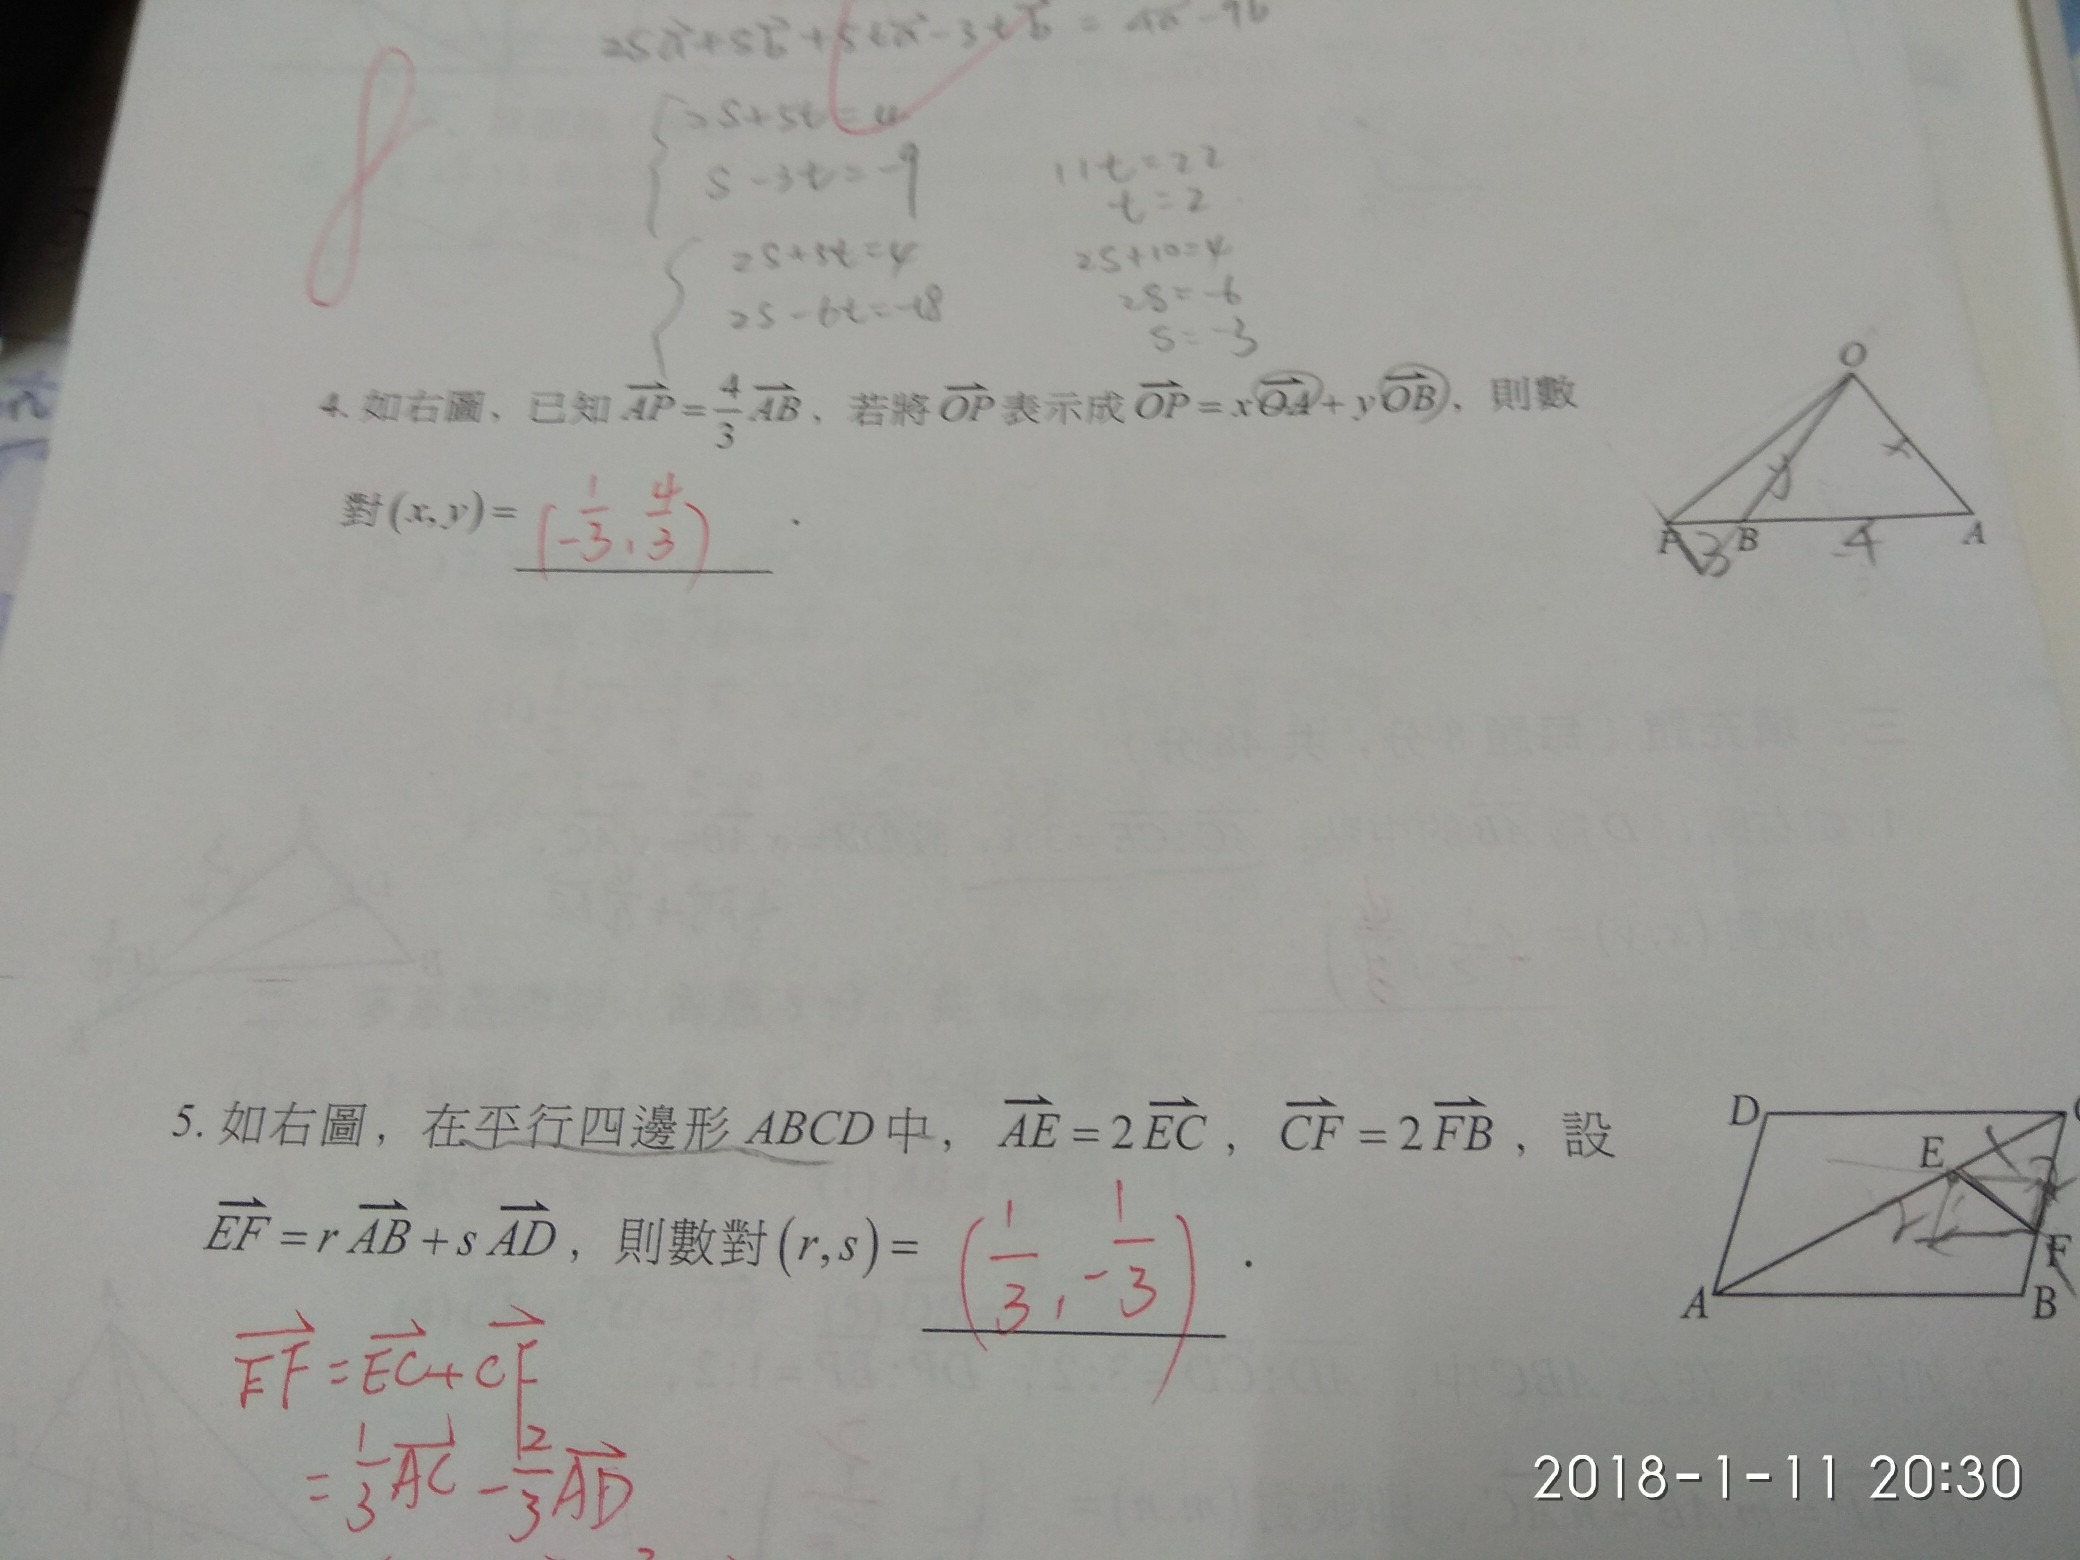 2s+5t=4
s-3t=-9
11t=22
t=2
2s+5t=4
2s-6t=-18
2s+10=4
2s=-6
s=-3
4. 如右圖，已知 AP = 4/3 AB，若將 OP 表示成 OP = x OA + y OB，則數
對(x, y)= (-1/3, 4/3).
O
x
y
P 3 B 4 A
5. 如右圖，在平行四邊形 ABCD 中，AE = 2 EC，CF = 2 FB，設
EF = r AB + s AD，則數對(r, s) = (1/3, -1/3).
D
E
F
A B
EF = EC + CF
= 1/3 AC - 2/3 AD
2018-1-11 20:30